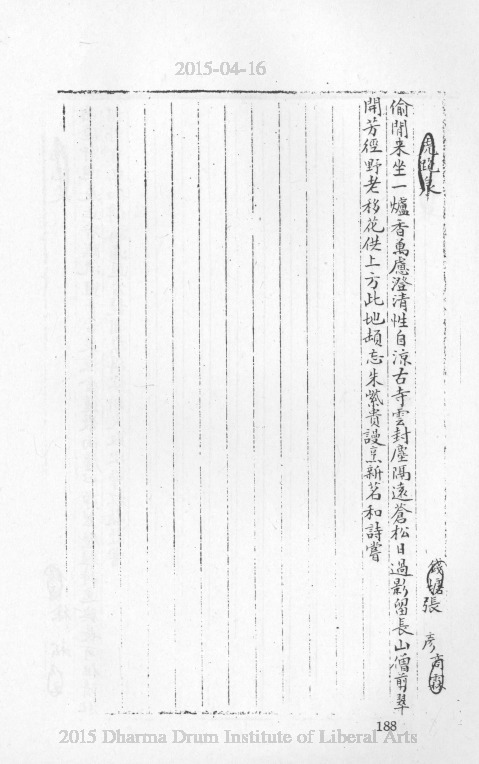 2015-04-16
虎跑泉
錢塘張彥商霖
偷閒来坐一爐香萬慮澄清性自涼古寺雲封塵隔遠蒼松日過影留長山僧剪翠
開芳徑野老移花供上方此地頓忘朱紫貴謾烹新茗和詩嘗
188
2015 Dharma Drum Institute of Liberal Arts